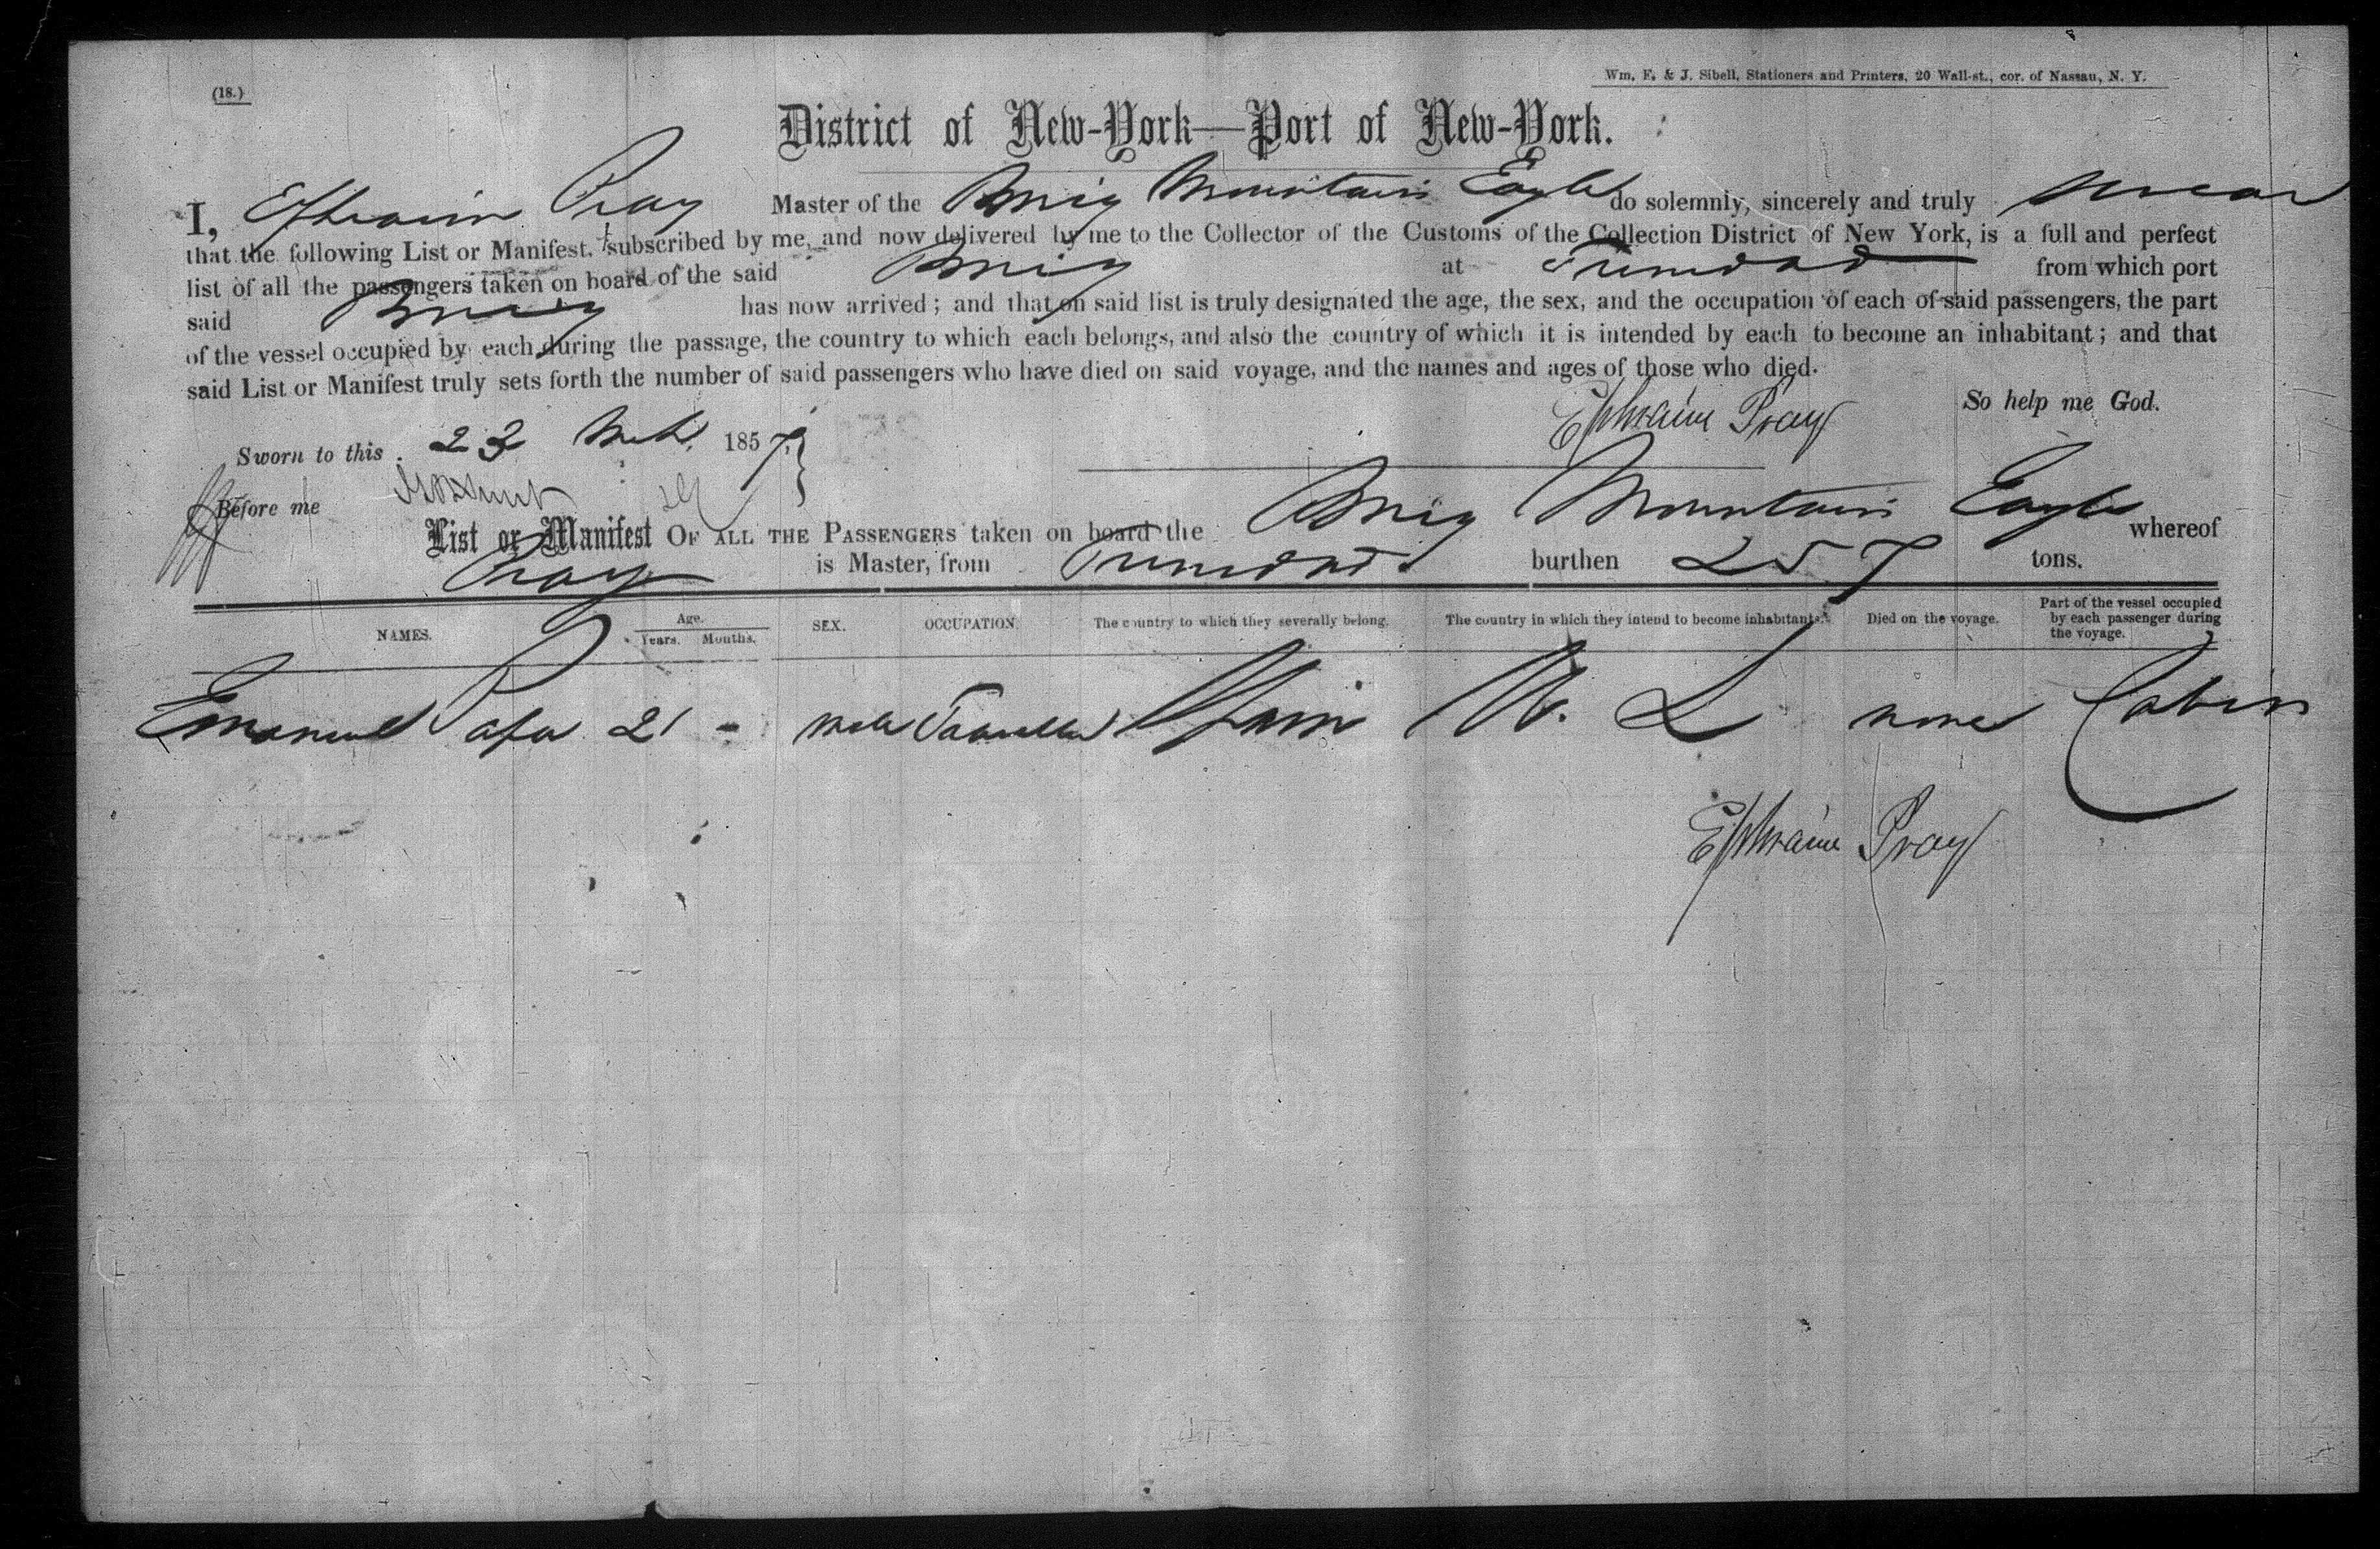 (18.)
Wm. F. & J. Sibell, Stationers and Printers, 20 Wall-st., cor. of Nassau, N. Y.
District of New-York—Port of New-York.
I, Ephraim Pray Master of the Brig Mountain Eagle do solemnly, sincerely and truly swear
that the following List or Manifest, subscribed by me, and now delivered by me to the Collector of the Customs of the Collection District of New York, is a full and perfect
list of all the passengers taken on board of the said Brig at Trinidad from which port
said Brig has now arrived; and that on said list is truly designated the age, the sex, and the occupation of each of said passengers, the part
of the vessel occupied by each during the passage, the country to which each belongs, and also the country of which it is intended by each to become an inhabitant; and that
said List or Manifest truly sets forth the number of said passengers who have died on said voyage, and the names and ages of those who died.
So help me God.
Ephraim Pray
Sworn to this 23 Mch 1857
Before me
List or Manifest OF ALL THE PASSENGERS taken on board the Brig Mountain Eagle whereof
Pray is Master, from Trinidad burthen 257 tons.
NAMES. Age. Years. Months. SEX. OCCUPATION. The country to which they severally belong. The country in which they intend to become inhabitants. Died on the voyage. Part of the vessel occupied by each passenger during the voyage.
Emanuel 21 - Male Traveller Spain U. S. none Cabin
Ephraim Pray